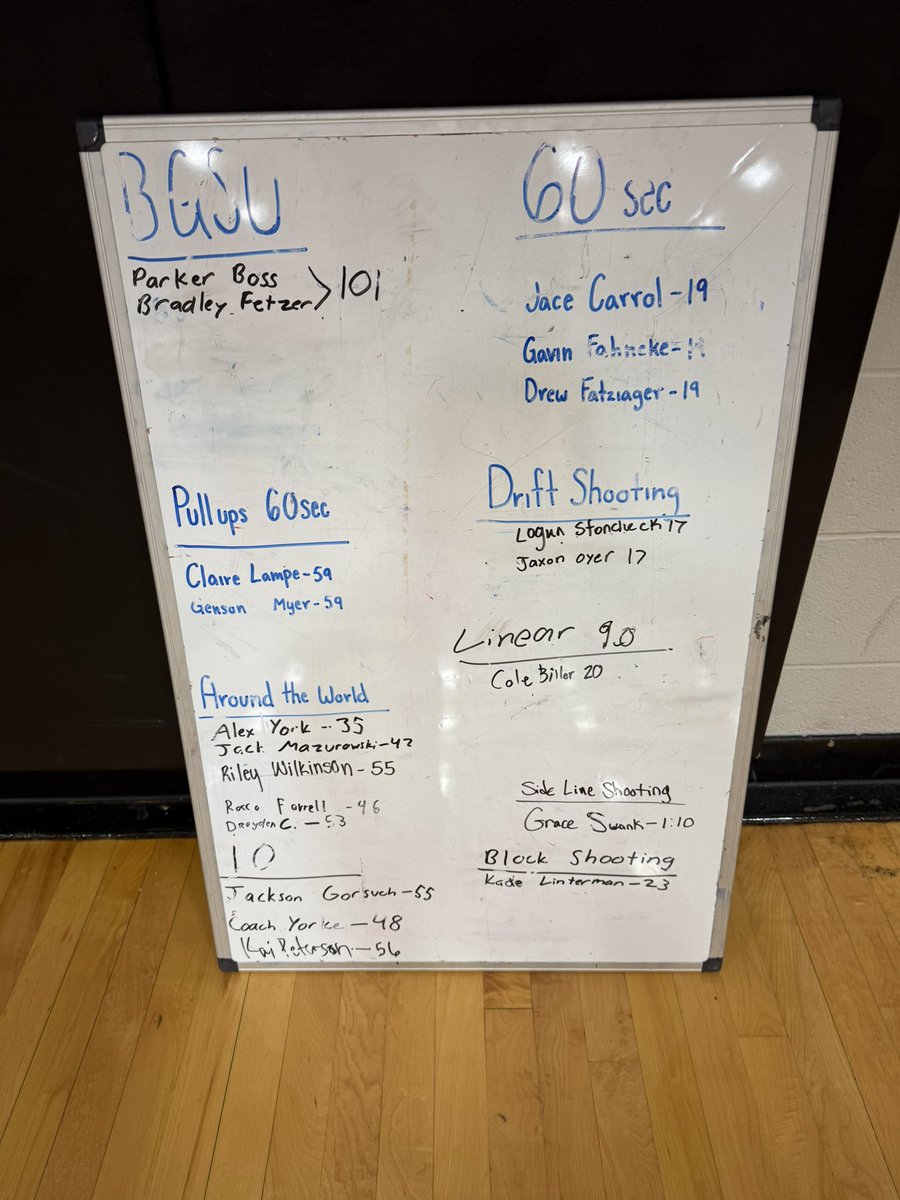 BGSU
Parker Boss
Bradley Fetzer > 101
Pull ups 60sec
Claire Lampe-59
Genson Myer-59
Around the World
Alex York - 35
Jack Mazurowski-42
Riley Wilkinson-55
Rocco Farrell -46
Drayden C. - 53
10
Jackson Gorsuch-55
Coach Yorke - 48
Kai Peterson - 56
60 sec
Jace Carrol-19
Gavin Fahncke-
Drew Fatziager-19
Drift Shooting
Logan 17
Jaxon oyer 17
Linear 90
Cole Biller 20
Side Line Shooting
Grace Swank-1:10
Block Shooting
Kade Linterman-23